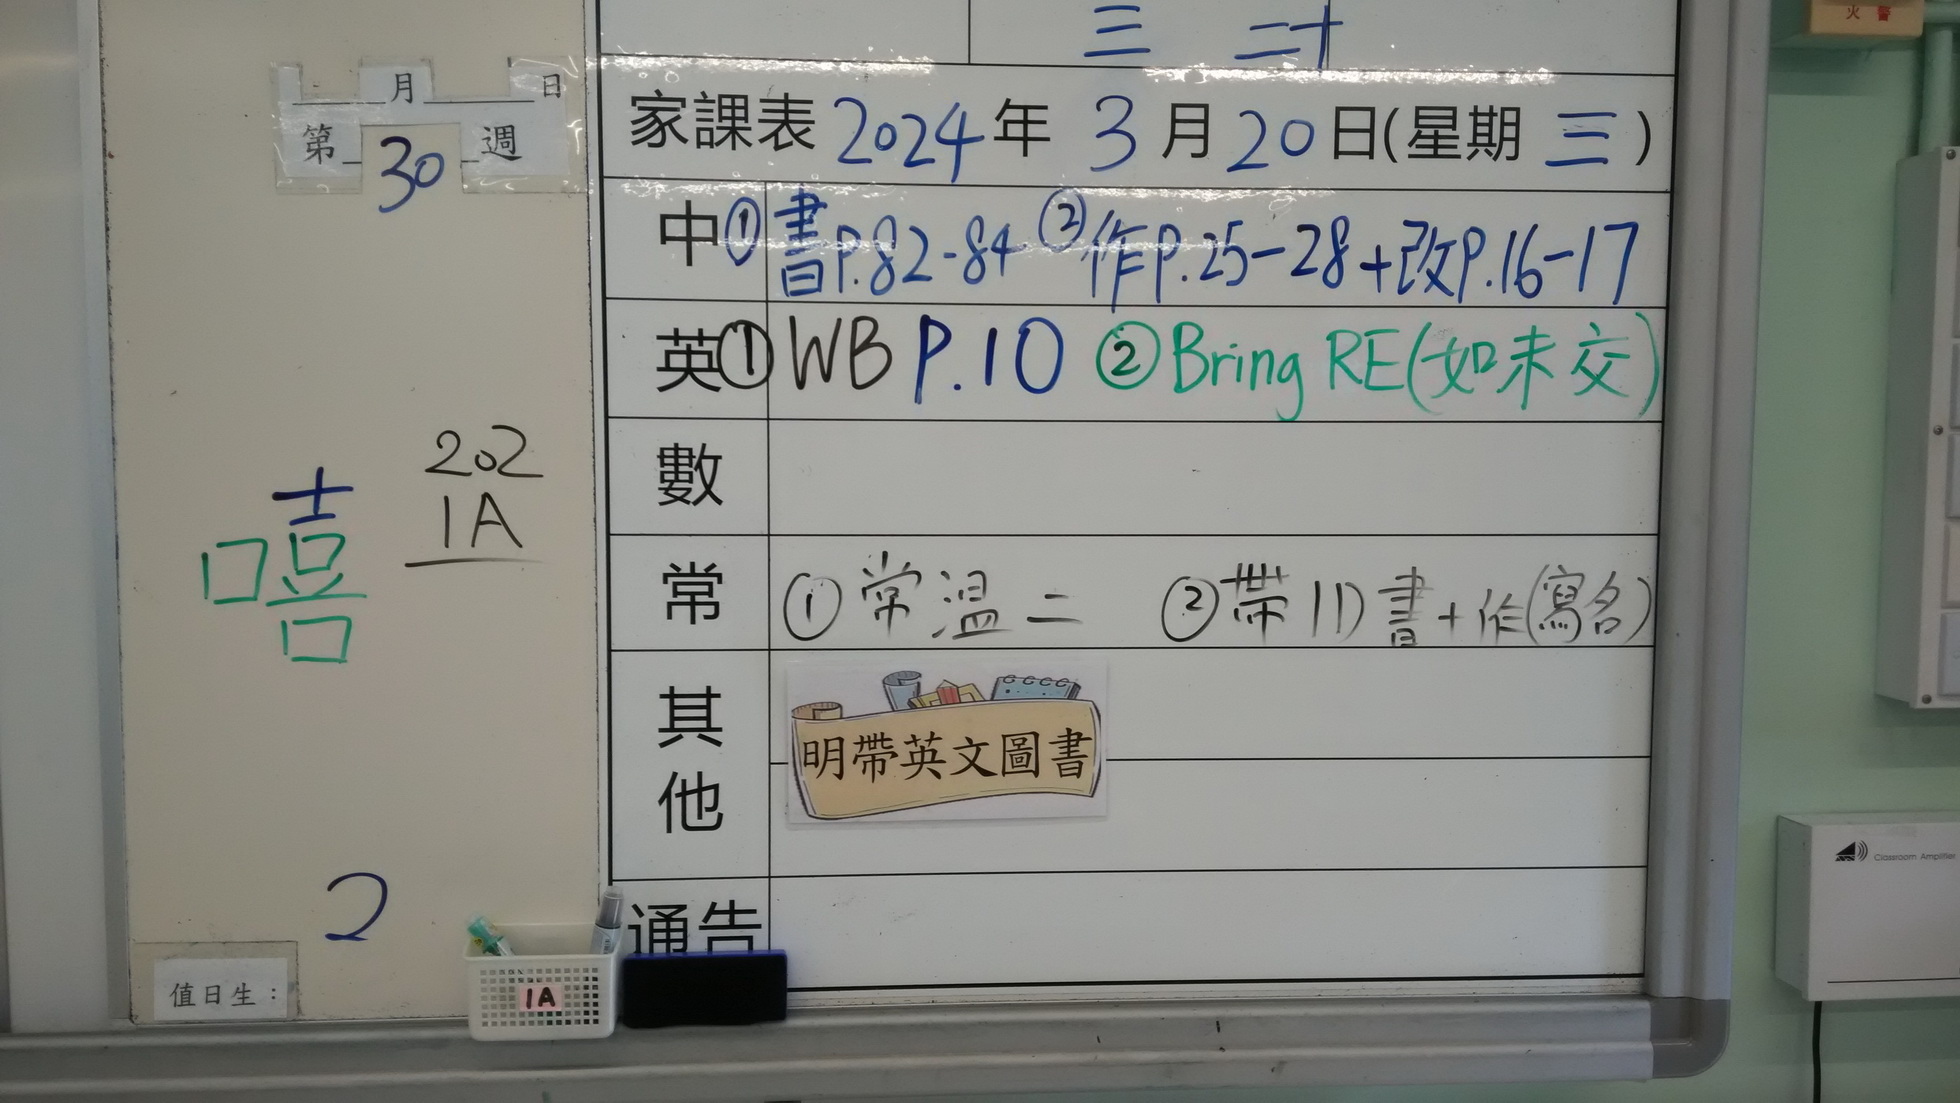 火警
三 二十
___月___日
第_30_週
202
1A
嘻
2
值日生：
1A
家課表 2024年 3月20日(星期 三)
中 ①書P.82-84 ②作P.25-28+改P.16-17
英 ①WB P.10 ②Bring RE(如未交)
數
常 ①常溫二 ②帶1D書+作(寫名)
其他
明帶英文圖書
通告
Classroom Amplifier